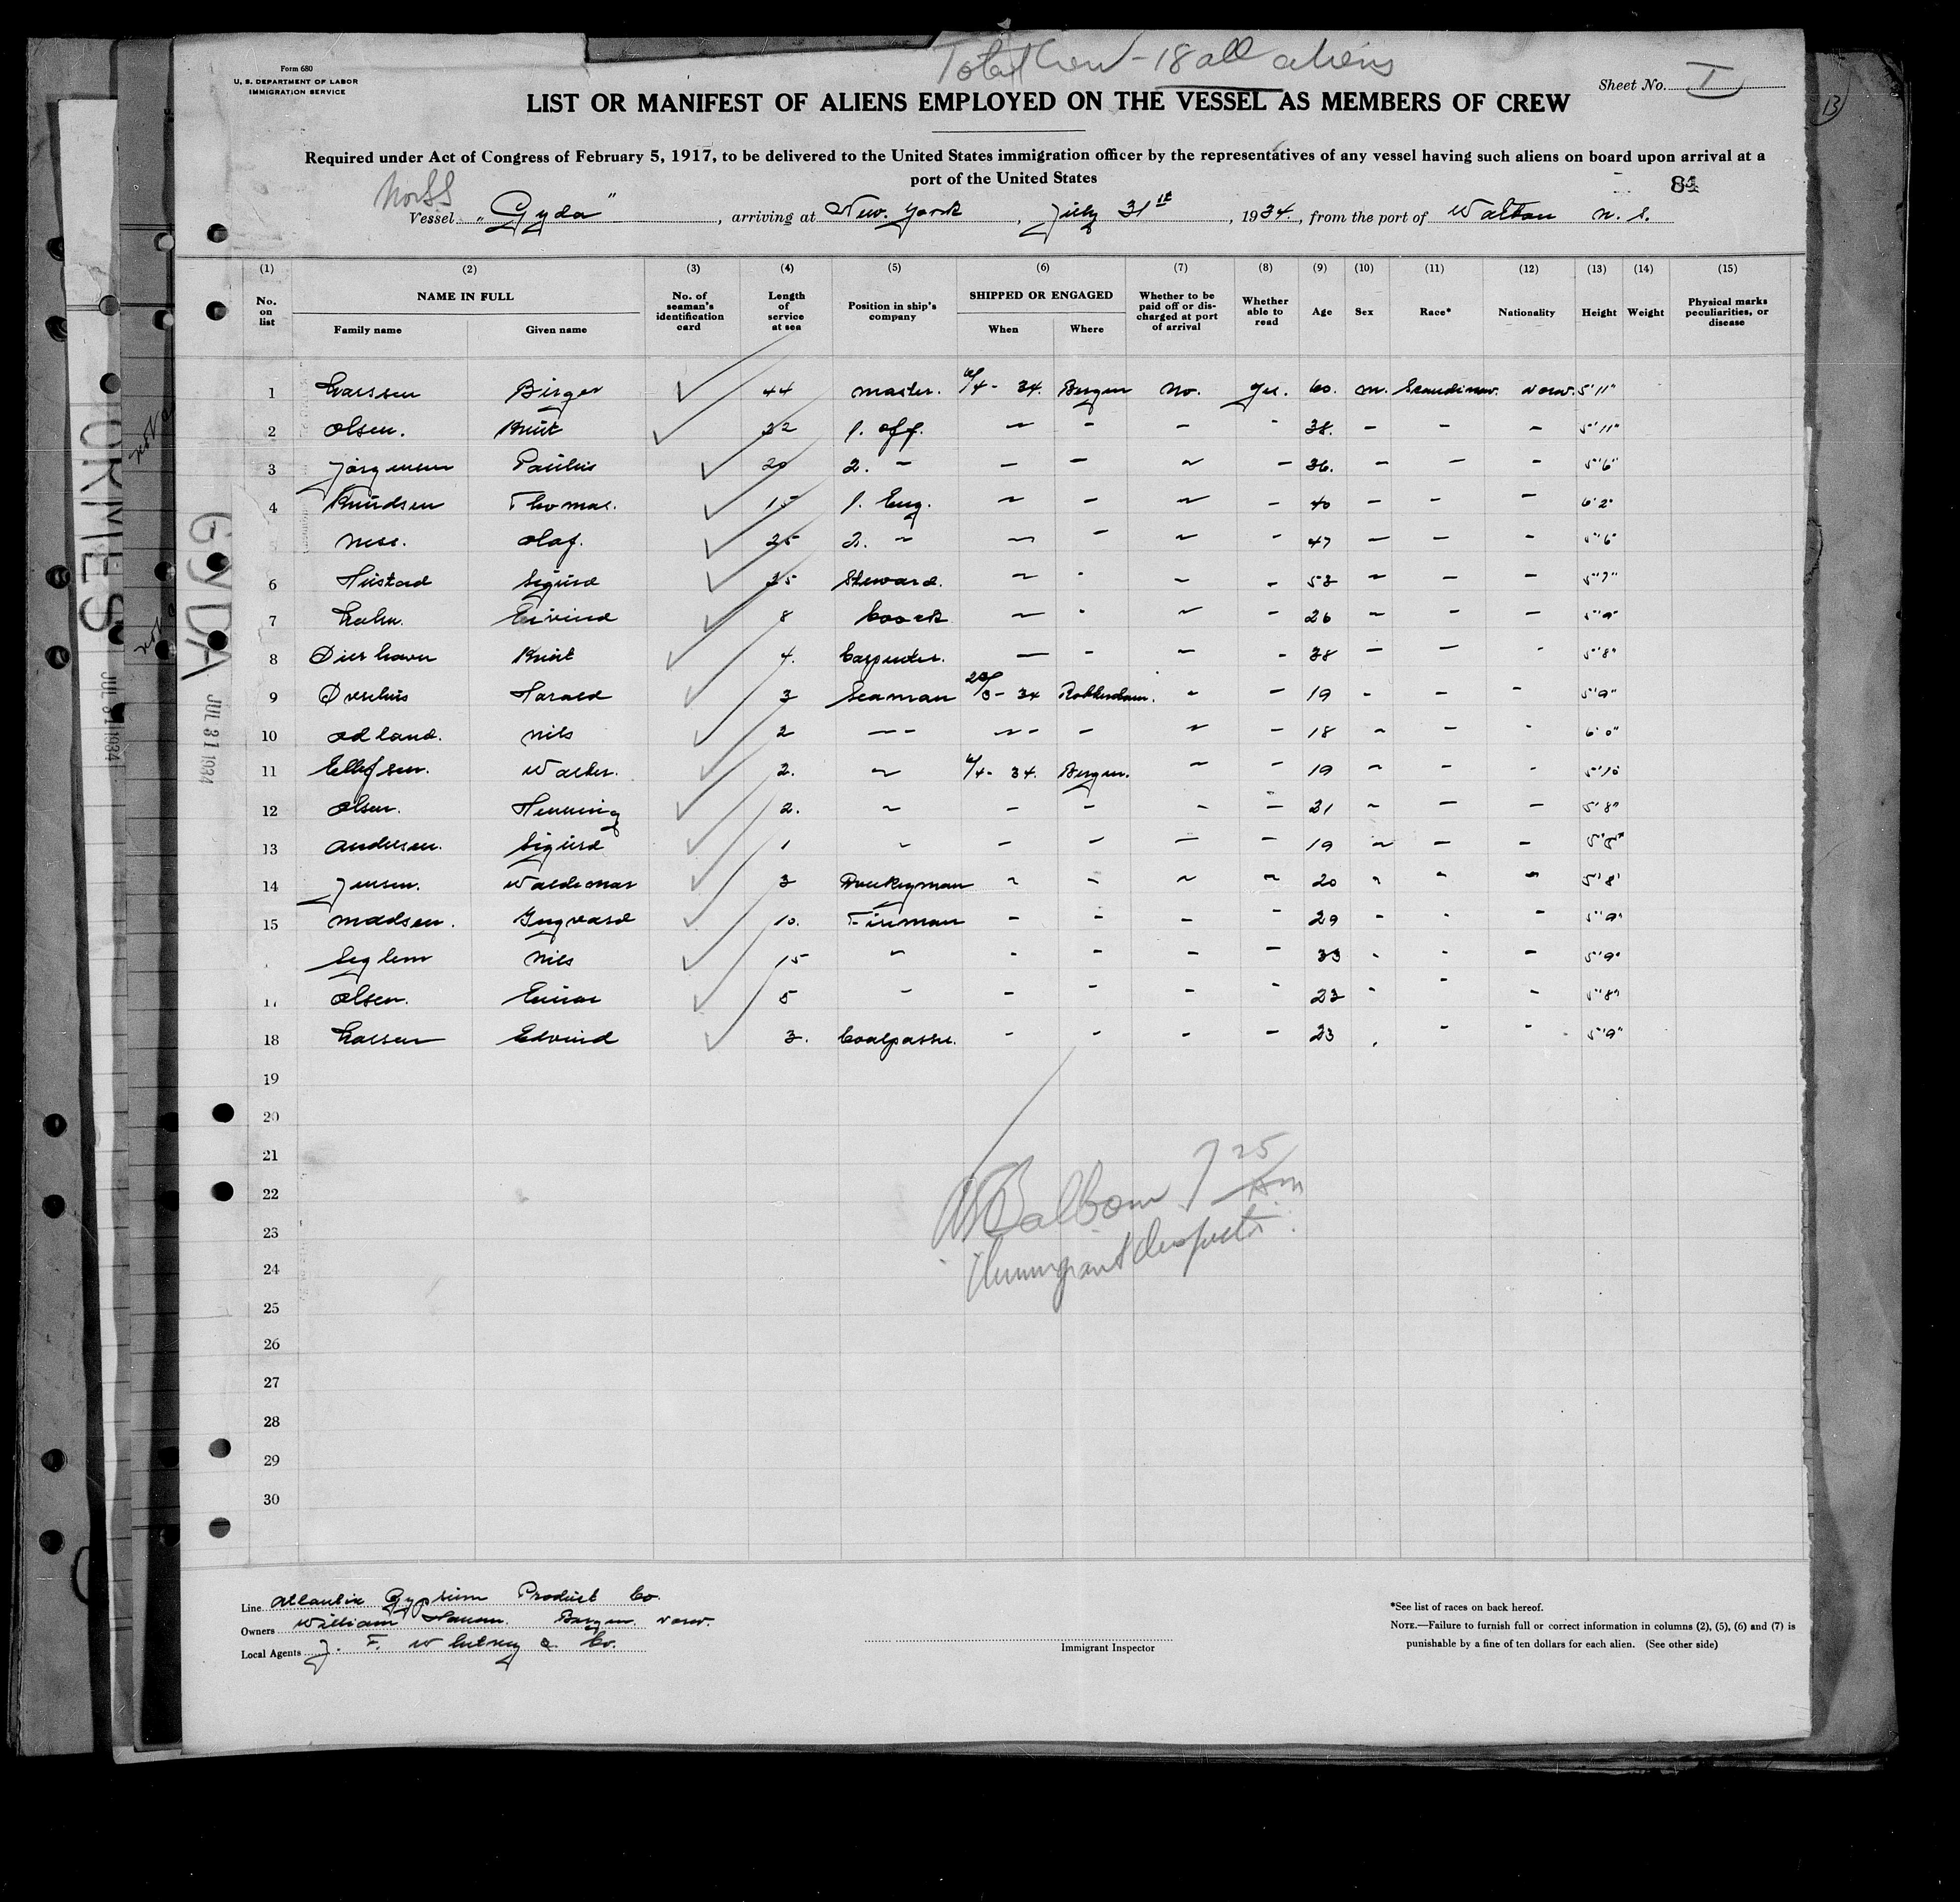 Total Crew - 18 all aliens
Form 680
U. S. DEPARTMENT OF LABOR
IMMIGRATION SERVICE
Sheet No. I
13
LIST OR MANIFEST OF ALIENS EMPLOYED ON THE VESSEL AS MEMBERS OF CREW
Required under Act of Congress of February 5, 1917, to be delivered to the United States immigration officer by the representatives of any vessel having such aliens on board upon arrival at a
port of the United States
84
Nor SS
Vessel "Gyda", arriving at New. York, July 31st, 1934, from the port of Walton n. s.
(1) (2) (3) (4) (5) (6) (7) (8) (9) (10) (11) (12) (13) (14) (15)
No. on list NAME IN FULL Family name Given name No. of seaman's identification card Length of service at sea Position in ship's company SHIPPED OR ENGAGED When Where Whether to be paid off or discharged at port of arrival Whether able to read Age Sex Race* Nationality Height Weight Physical marks peculiarities, or disease
1 Larssen Birger 44 master. 4- 34. Bergen No. yes. 60. m. Scandinav. norw. 5'11"
2 Olsen. Knut 22 1. off. ~ - - - 38. - - - 5'11"
3 Jörgensen Paulus 20 2. - - - ~ - 36. - - - 5'6"
4 Knudsen Thomas. 15 1. Eng. ~ - ~ - 40 - - - 6'2"
ness. Olaf. 25 2. ~ ~ - ~ - 47 - - - 5'6"
6 Hustad Sigurd 35 Steward. ~ - ~ - 53 ~ - - 5'7"
7 Eivind 8 Coock ~ - ~ - 26 ~ - - 5'9"
8 Knut 4. Carpenter. - - - - 38 - - - 5'8"
9 Harald 3 Seaman 34 Rotterdam. - - 19 - - - 5'9"
10 Odland. nils 2 -- ~- - ~ - 18 ~ - - 6'0"
11 Ellefsen. Walter. 2. ~ 4- 34. Bergen. ~ - 19 ~ - - 5'10
12 Olsen. Henning 2. ~ - - - - 21 ~ - - 5'8"
13 Andersen. Sigurd 1 - - - - - 19 ~ - - 5'8"
14 Jensen. Waldemar 3 Donkeyman ~ - ~ ~ 20 - - - 5'8'
15 Madsen. Ingvard 10. Fireman - - - - 29 - - - 5'9"
Seglem Nils 15 - - - - - 33 - - - 5'9"
17 Olsen. Einar 5 - - - - - 23 - - - 5'8"
18 Larsen Edvind 3. Coalpasser. - - - - 23 - - - 5'9"
19
20
21
22
23
24
25
26
27
28
29
30
Balbom 7 25 Am
Immigrant Inspector
Line Atlantic Gypsum Product Co.
Owners William Hansen. Bergen. norw.
Local Agents J. F. Whitney & Co.
Immigrant Inspector
*See list of races on back hereof.
NOTE.—Failure to furnish full or correct information in columns (2), (5), (6) and (7) is
punishable by a fine of ten dollars for each alien. (See other side)
GYDA
JUL 31 1934
JUL 31 1934